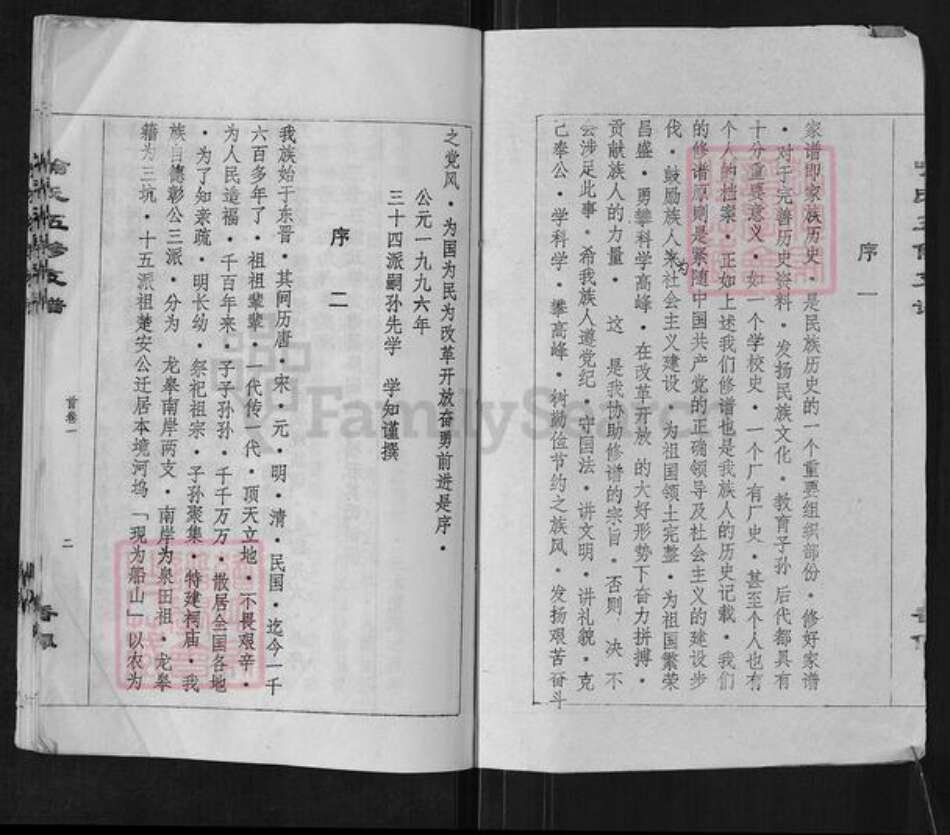 序一
家谱即家族历史·是民族历史的一个重要组织部份·修好家谱
·对于完善历史资料·发扬民族文化·教育子孙后代都具有
十分重要意义·如一个学校史·一个厂有厂史·甚至个人也有
个人的档案·正如上述我们修谱也是我族人的历史记载·我们
的修谱原则是紧随中国共产党的正确领导及社会主义的建设步
伐·鼓励族人来为社会主义建设·为祖国领土完整·为祖国繁荣
昌盛·勇攀科学高峰·在改革开放的大好形势下奋力拼搏·
贡献族人的力量·这是我协助修谱的宗旨·否则决不
会涉足此事·希我族人遵党纪·守国法·讲文明·讲礼貌·克
己奉公·学科学·攀高峰·树勤俭节约之族风·发扬艰苦奋斗
之党风·为国为民为改革开放奋勇前进是序·
公元一九九六年
三十四派嗣孙先学 学知谨撰
序二
我族始于东晋·其间历唐·宋·元·明·清·民国·迄今一千
六百多年了·祖祖辈辈·一代传一代·顶天立地·不畏艰辛·
为人民造福·千百年来·子子孙孙·千千万万·散居全国各地
·为了知亲疏·明长幼·祭祀祖宗·子孙聚集·特建祠庙·我
族自德彰公三派·分为 龙皋南岸两支·南岸为泉田祖·龙皋
籍为三坑·十五派祖楚安公迁居本境河坞「现为船山」以农为
五修支谱
首卷一
二
FamilySearch